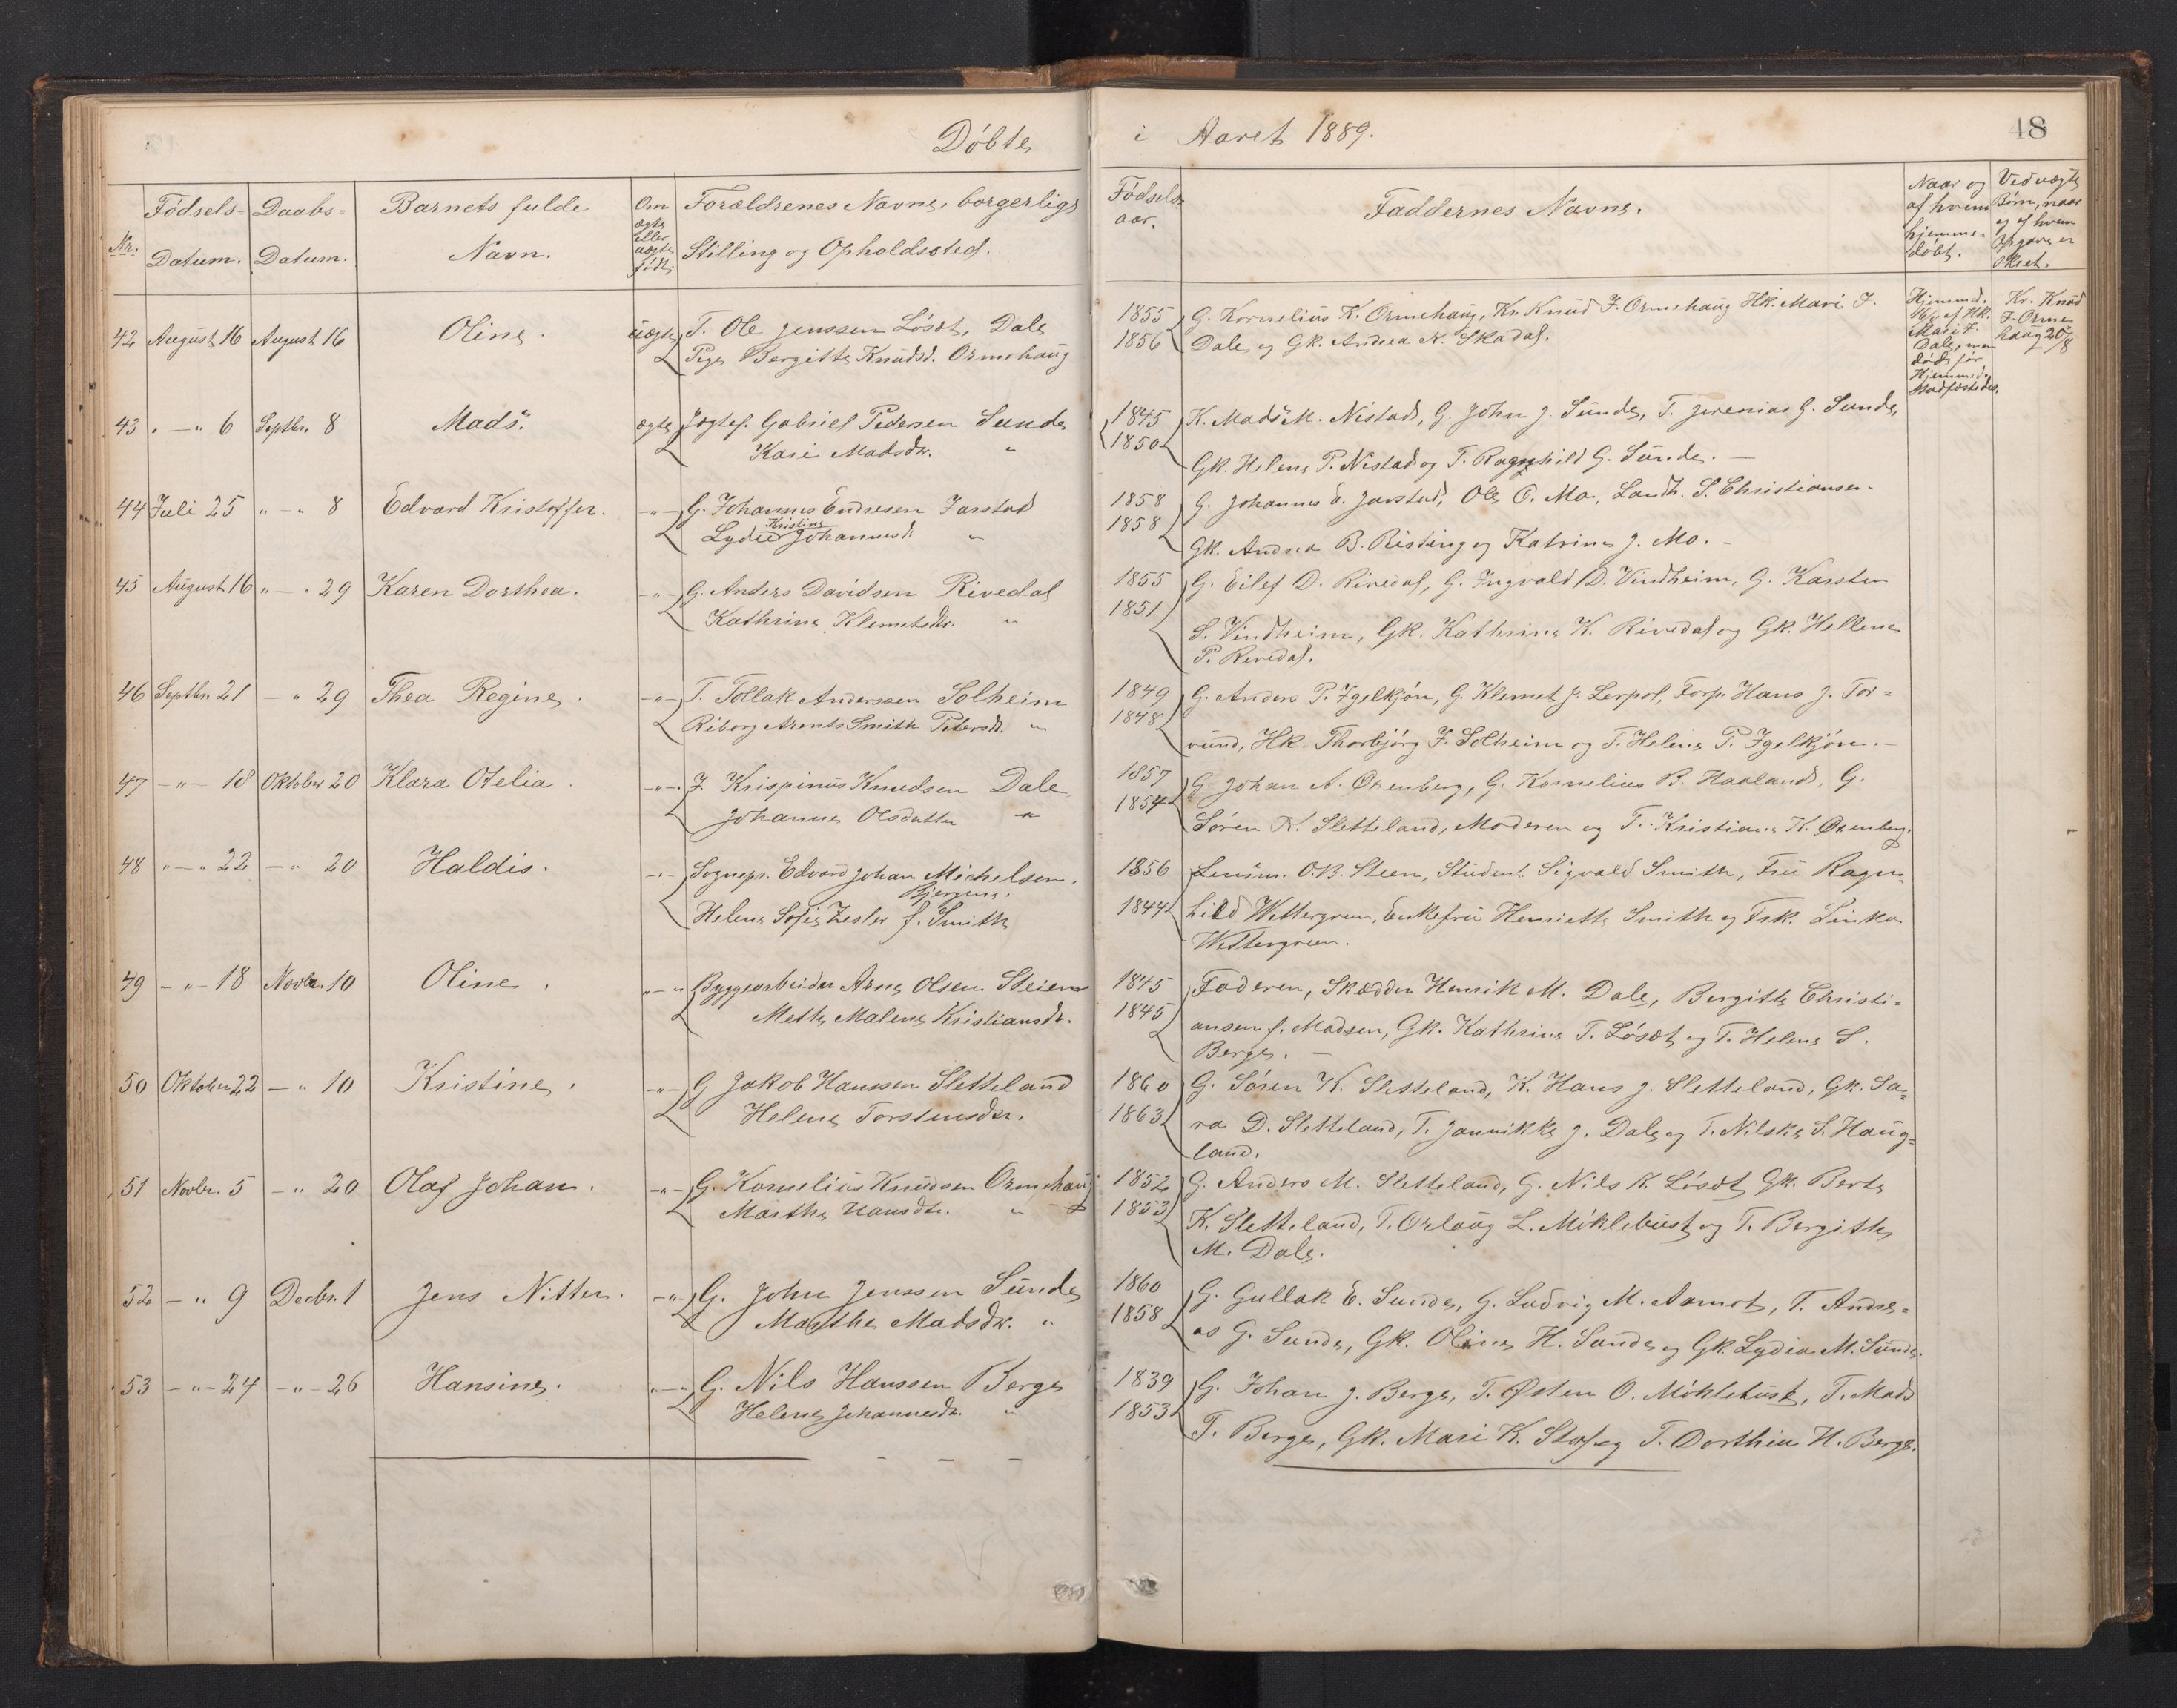 Døbte i Aaret 1889.
48
Nr.
Fødsels-
Datum.
Daabs-
Datum.
Barnets fulde
Navn.
Om
ægte
eller
uægte
født.
Forældrenes Navne, borgerlige
Stilling og Opholdssted.
Fødsels-
aar.
Faddernes Navne.
Naar og
af hvem
hjemme-
døbt.
Ved uægte
Børn, naar
og af hvem
Opgave er
skeet.
42 August 16 August 16 Oline. uægte T. Ole Jenssen Løset, Dale
Pige Bergitte Knudsd. Ormehaug
1855 G. Kornelius K. Ormehaug, Kr. Knud J. Ormehaug Hk. Mari J.
1856 Dale og Gk. Andrea N. Skadal.
Hjemmed.
af Hk.
Mari J.
Dale, men
døde før
Hjemmed.
stadfæstedes.
Kr. Knud
J. Orme-
haug 20/8
43 " — " 6 Septbr. 8 Mads. ægte Jægtef. Gabriel Pedersen Sunde
Kari Madsdr. "
1845 K. Mads M. Nistad, G. John J. Sunde, T. Jeremias G. Sunde,
1850 Gk. Helene P. Nistad og T. Ragnhild G. Sunde. —
44 Juli 25 " — " 8 Edvard Kristoffer. — " — G. Johannes Endresen Jarstad
Kristine
Lydie Johannesd. "
1858 G. Johannes E. Jarstad, Ole O. Mo, Landh. S. Christiansen
1858 Gk. Andrea B. Risting og Katrine J. Mo. —
45 August 16 " — " 29 Karen Dorthea. — " — G. Anders Davidsen Rivedal
Kathrine Klemetsdr. "
1855 G. Eilef D. Rivedal, G. Ingvald D. Vindheim, G. Karsten
1851 S. Vindheim, Gk. Kathrine K. Rivedal og Gk. Hellene
P. Rivedal.
46 Septbr. 21 — " 29 Thea Regine. — " — T. Tollak Anderssen Solheim
Riborg Arents Smith Petersdr. "
1849 G. Anders P. Igelkjøn, G. Klemet J. Lerpol, Forp. Hans J. Tor-
1848 vund, Hk. Thorbjørg J. Solheim og T. Helene P. Igelkjøn. —
47 — " — 18 Oktober 20 Klara Otelia. — " — J. Krispinus Knudsen Dale
Johanne Olsdatter "
1857 G. Johan A. Oxenberg, G. Kornelius B. Haaland, G.
1854 Søren K. Sletteland, Moderen og T. Kristiane K. Oxenberg.
48 " — " 22 — " 20 Haldis. — " — Sognepr. Edvard Johan Michelsen
Bjergum.
Helene Sofie Zesler f. Smith
1856 Lensm. O. B. Steen, Student Sigvald Smith, Fru Ragn-
1844 hild Wettergreen, Enkefru Henriette Smith og Frk. Linka
Wettergreen.
49 — " — 18 Novbr. 10 Oline. " — " Byggearbeider Arne Olsen Steien
Mette Malene Kristiansdr.
1845 Faderen, Skædder Henrik M. Dale, Bergitte Christi-
1845 ansen f. Madsen, Gk. Kathrine T. Løset og T. Helene S.
Berge. —
50 Oktober 22 — " 10 Kristine. — " — G. Jakob Hanssen Sletteland
Helene Torstensdr.
1860 G. Søren K. Sletteland, K. Hans J. Sletteland, Gk. Sa-
1863 ra D. Sletteland, T. Jannikke J. Dale og T. Nilske S. Haug-
land.
51 Novbr. 5 — " 20 Olaf Johan. — " — G. Kornelius Knudsen Ormehaug
Marthe Hansdtr. "
1852 G. Anders M. Sletteland, G. Nils K. Løset, Gk. Berte
1853 K. Sletteland, T. Orlaug L. Møklebust og T. Bergithe
M. Dale.
52 — " 9 Decbr. 1 Jens Nitter. — " — G. John Jenssen Sunde
Marthe Madsdr. "
1860 G. Gullak E. Sunde, G. Ludvig M. Aamot, T. Andre-
1858 as G. Sunde, Gk. Oline H. Sunde og Gk. Lydia M. Sunde.
53 — " — 24 — " — 26 Hansine. " — " G. Nils Hanssen Berge
Helene Johannesdr. "
1839 G. Johan J. Berge, T. Østen O. Møklebust, T. Mads
1853 T. Berge, Gk. Mari K. Staf og T. Dorthea H. Berge.